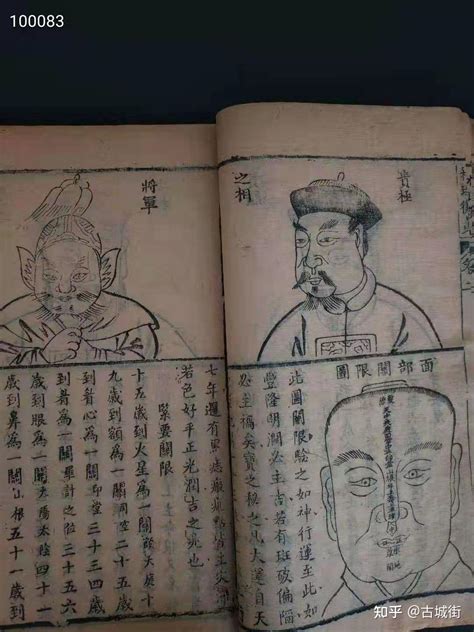 100083
貴極
之相
面部關限圖
此圖關限驗之如神行運至此如
豐隆明潤必主吉若有斑破偏陷
必主禍矣寶之秘之凡大運自天
將軍
七年還有
若色好平正光潤吉之兆也
緊要關限
十五歲到火星為一關
九歲到額為一關司空二十五歲
到眷心為一關印堂三十三四歲
到眷為一關羅計之位三十五六
歲到眼為一關太陽太陰四十一
歲到鼻為一關山根五十一歲到
知乎 @古城街